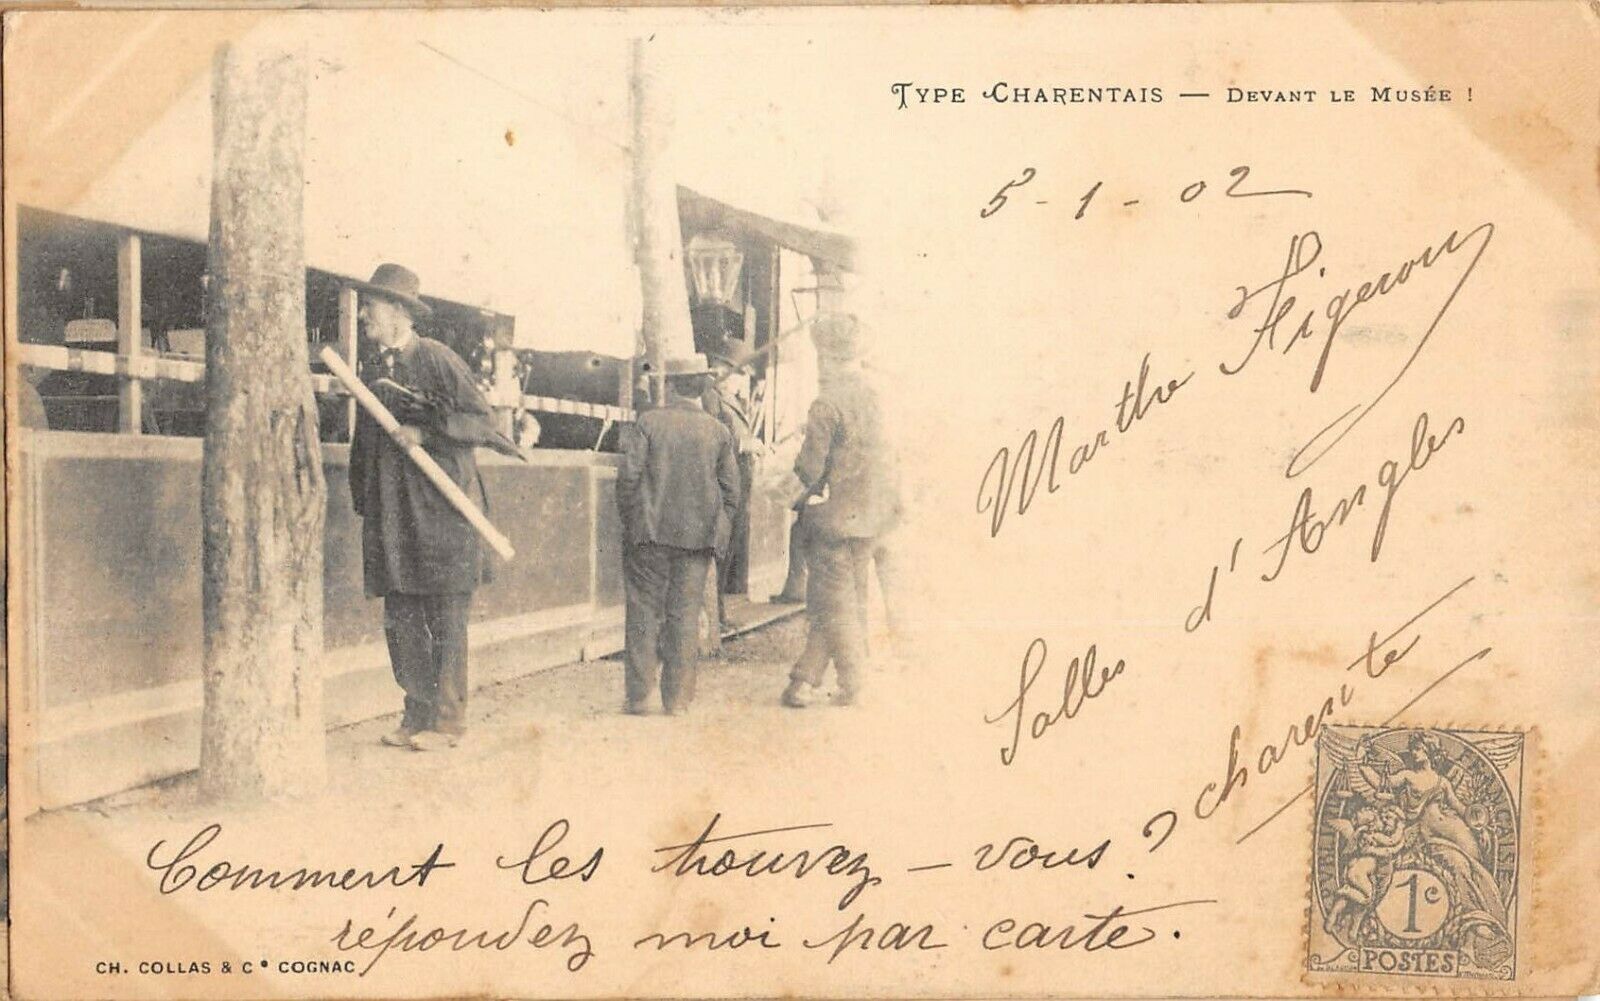 TYPE CHARENTAIS — DEVANT LE MUSÉE !
5-1-02
Marthe Figerou
Salles d'Angles
charente
Comment les trouvez-vous ?
répondez moi par carte.
CH. COLLAS & Cº COGNAC
RÉPUBLIQUE FRANÇAISE
1c
POSTES